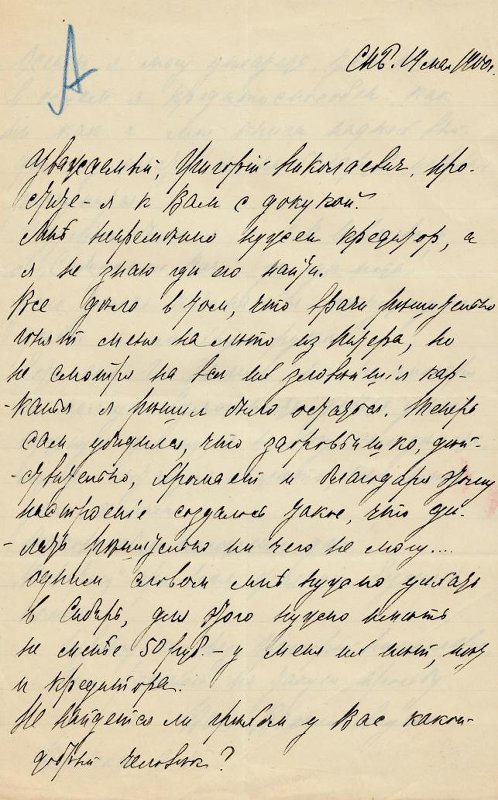 А
СПБ. 19 мая 1900.
Уважаемый, Григорий Николаевич, про-
стите - я к Вам с докукой.
Мнѣ непременно нужен кредитор, а
я не знаю где его найти.
Все дѣло в том, что врачи решительно
гонят меня на лето из Питера, но
не смотря на все их зловещия кар-
-канья я решил было остаться. Теперь
сам убедился, что здоровьишко, дей-
ствительно, хромает и благодаря этому
настроение создалось такое, что де-
-лать решительно ни чего не могу....
одним словом мнѣ нужно уехать
в Сибирь, для этого нужно иметь
не менѣе 50 руб. - у меня их нет, нет
и кредитора.
Не найдется ли у Вас какой-
добрый человек?